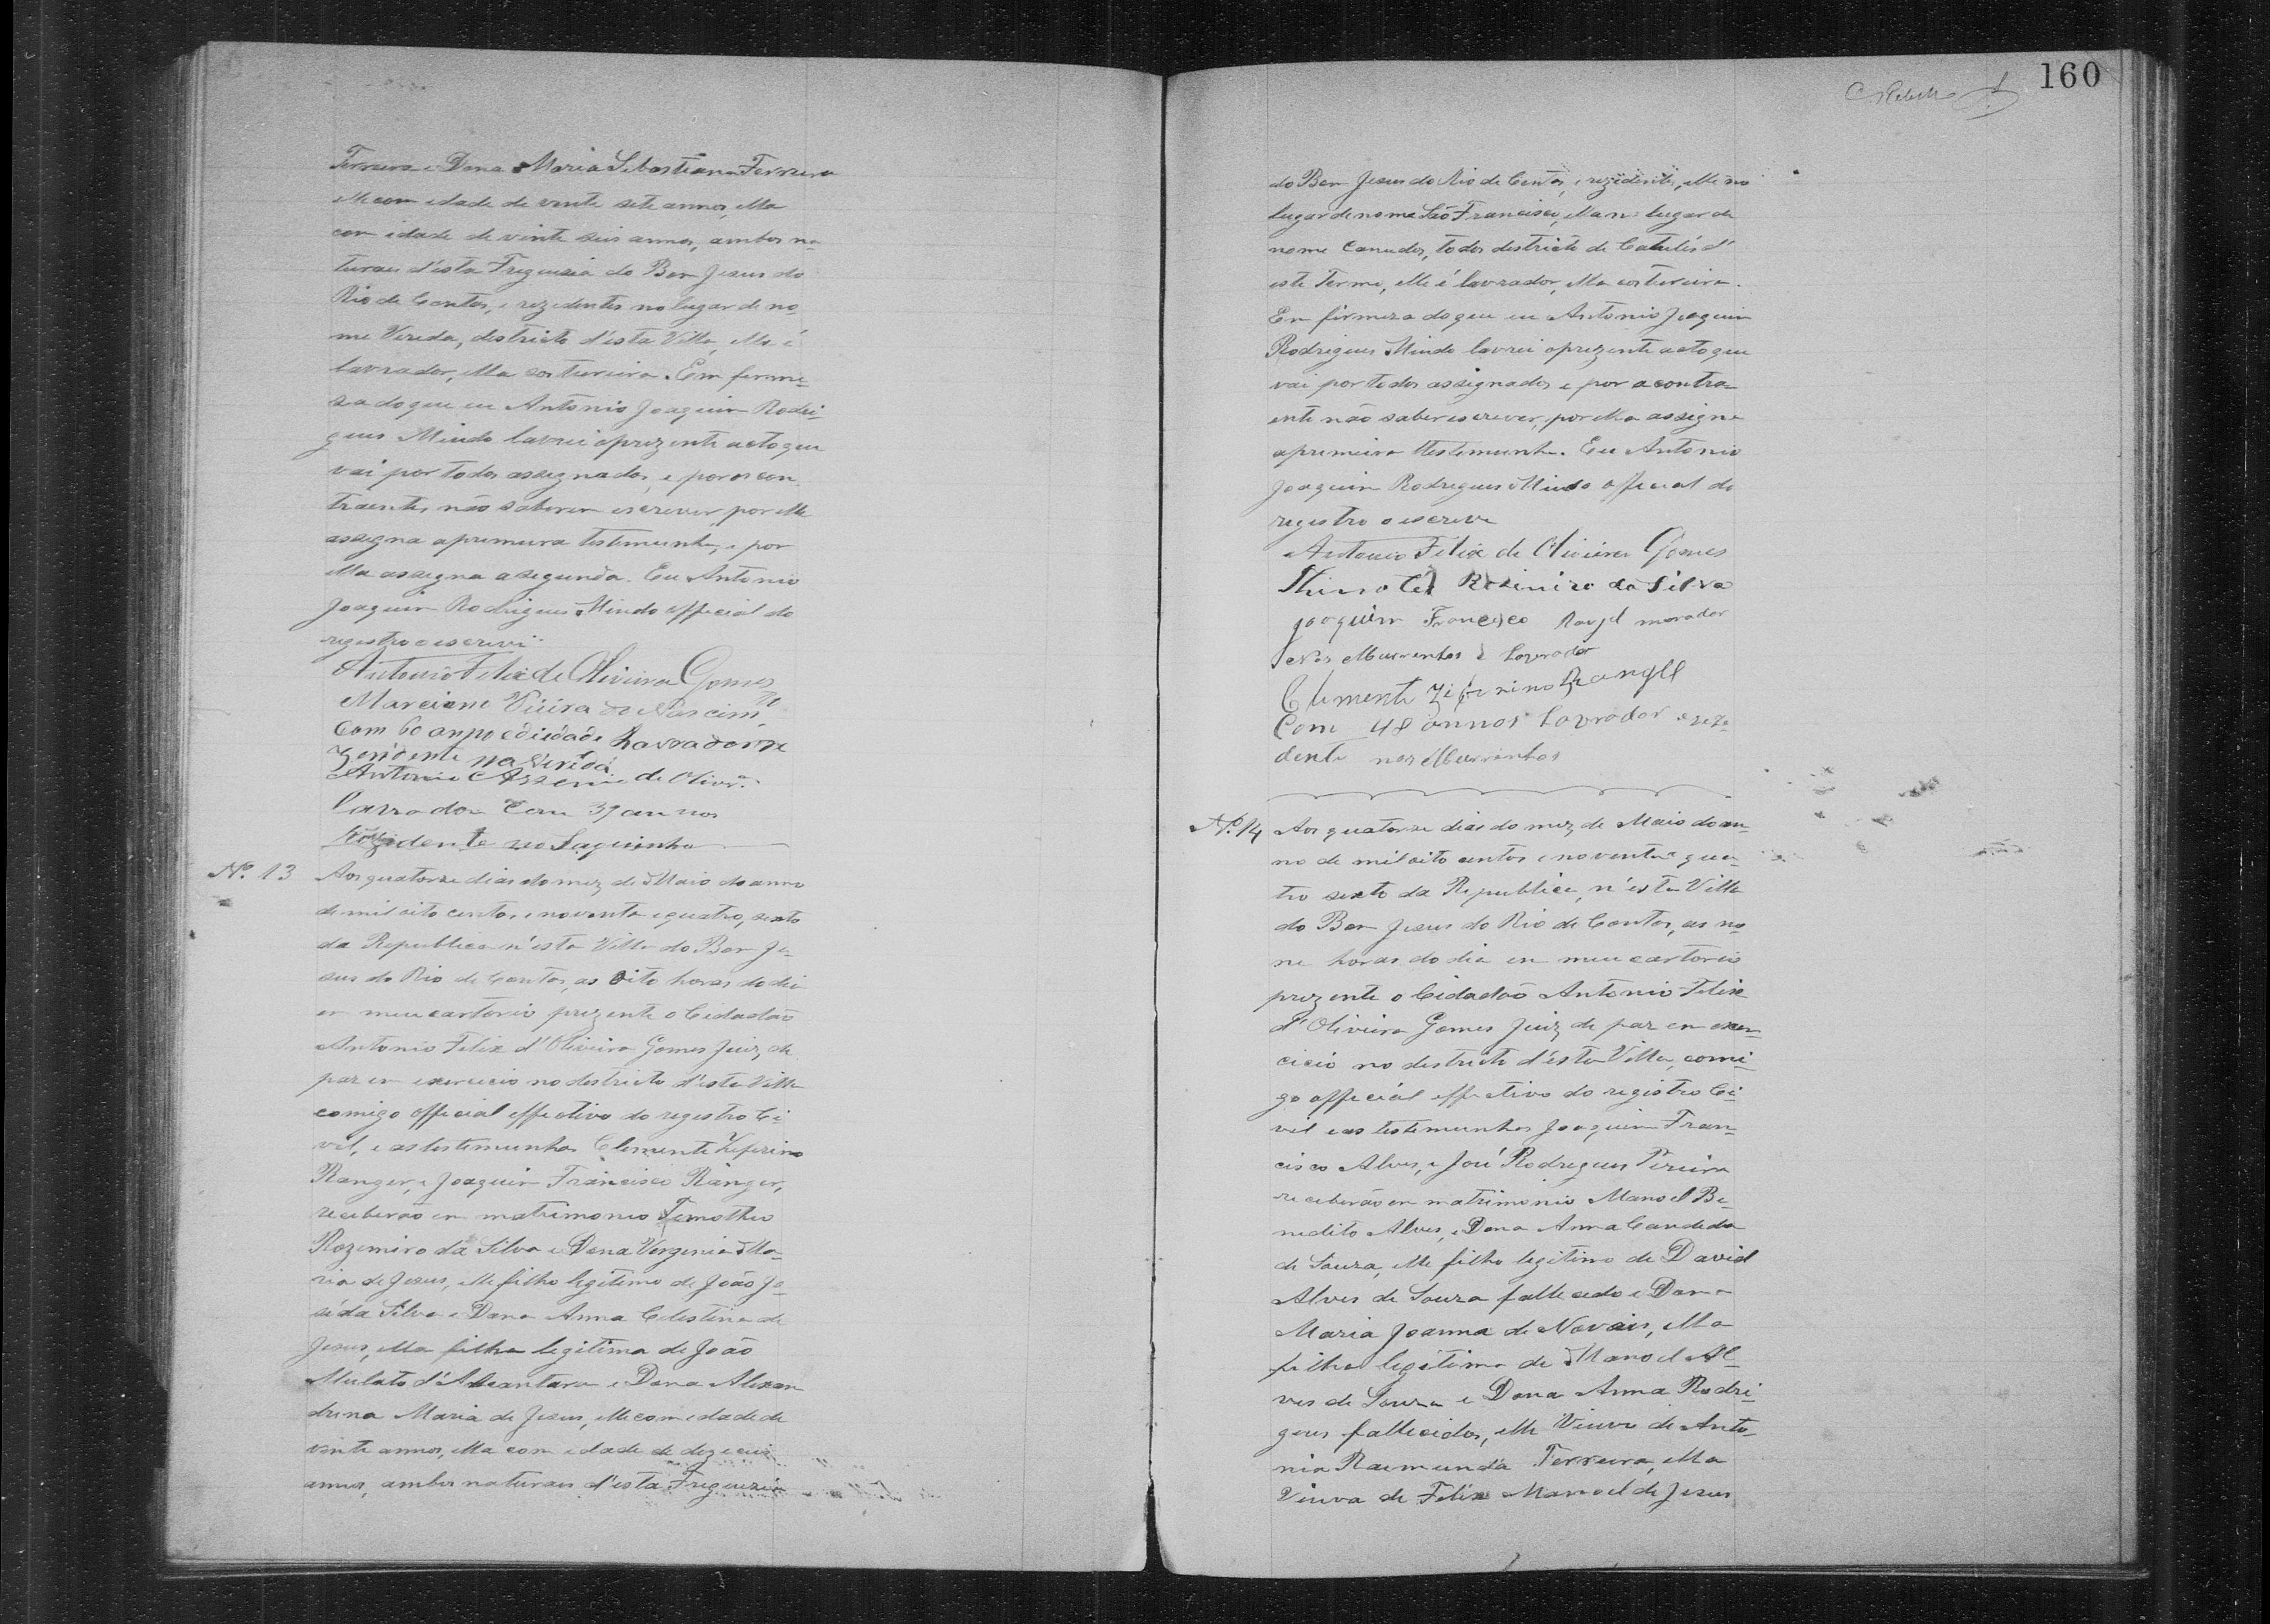 Ferreira e Dona Maria Sebastiana Ferreira
elle com edade de vente sete annos, ella
com idade de vinte seis annos, ambos na-
turaes d'esta Freguezia do Bom Jesus do
Rio de Contas, e rezedentes no lugar de no-
me Vereda, destricto d'esta Villa, elle é
lavrador, ella costureira. Em firme-
za do que eu Antonio Joaquim Rodri-
gues Mindo lavrei o prezente acto que
vai por todos assegnados, e por os con-
traentes não saberem escrever, por elle
assegna a premeira testemunha, e por
ella assegna a segunda. Eu Antonio
Joaquim Rodrigues Mindo official do
registro o escrevi
Antonio Felix de Oliveira Gomes
Marciano Vieira do Nascim.to
Com 60 anno de idade Lavrador re
zendente na Vereda
Antonio Arzenio de Olivr.a
lavrador Com 39 annos
Rezidente no Laguinho
Nº. 13 Aos quatorze dias do mez de Maio do anno
de mil oito centos e noventa e quatro, sexto
da Republica n'esta Villa do Bom Je-
sus do Rio de Contas, as oito horas do dia
em meu cartorio prezente o Cidadão
Antonio Felix d'Oliveira Gomes Juiz de
paz em exercicio no destricto d'esta Villa
comigo official effectivo do registro Ci-
vel, e as testemunhas Clemente Zeferino
Ranger, e Joaquim Francisco Ranger,
receberão em matrimonio Temotheo
Rozemiro da Silva e Dona Vergenia Ma-
ria de Jesus, elle filho legitimo de João Jo-
sé da Silva e Dona Anna Celestina de
Jesus, ella filha legitima de João
Mulato d'Alcantara e Dona Alexan
drina Maria de Jesus, elle com edade de
vinte annos, ella com edade de dezeseis
annos, ambos naturaes d'esta Freguezia
160
do Bom Jesus do Rio de Contas, e rezidente, elle no
lugar de nome São Francisco, ella no lugar de
nome Canudos, todos destricto de Catulés d'
este Termo, elle é lavrador, ella costureira.
Em firmeza do que eu Antonio Joaquim
Rodrigues Mindo lavrei o prezente acto que
vai por todos assignados e por a contra-
ente não saber escrever, por ella assigna
a primeira testemunha. Eu Antonio
Joaquim Rodrigues Mindo official do
registro o escrevi
Antonio Felix de Oliveira Gomes
Thimoteo Rosimiro da Silva
Joaquim Francisco Rangel morador
Nos Murrinhos e Lavrador
Clemente Ziferino Rangell
Com 48 annos Lavrador e reze
dente nos Murrinhos
Nº. 14 Aos quatorze dias do mez de Maio do an-
no de mil oito centos e noventa e qua-
tro sexto da Republica, n'esta Villa
do Bom Jesus do Rio de Contas, as no-
ve horas do dia em meu cartorio
prezente o Cidadão Antonio Felix
d'Oliveira Gomes Juiz de paz em exer-
cicio no destricto d'esta Villa, comi-
go official effectivo do registro Ci-
vel e as testemunhas Joaquim Fran-
cisco Alves, e José Rodrigues Pereira
receberão em matrimonio Manoel Be-
nedito Alves, e Dona Anna Candeda
de Souza, elle filho legitimo de David
Alves de Souza fallecedo e Dona
Maria Joanna de Novais, ella
filha legitima de Manoel Al-
ves de Souza e Dona Anna Rodri-
gues fallecidos, elle Viuvo de Anto-
nia Raemunda Ferreira, ella
Viuva de Felix Manoel de Jesus